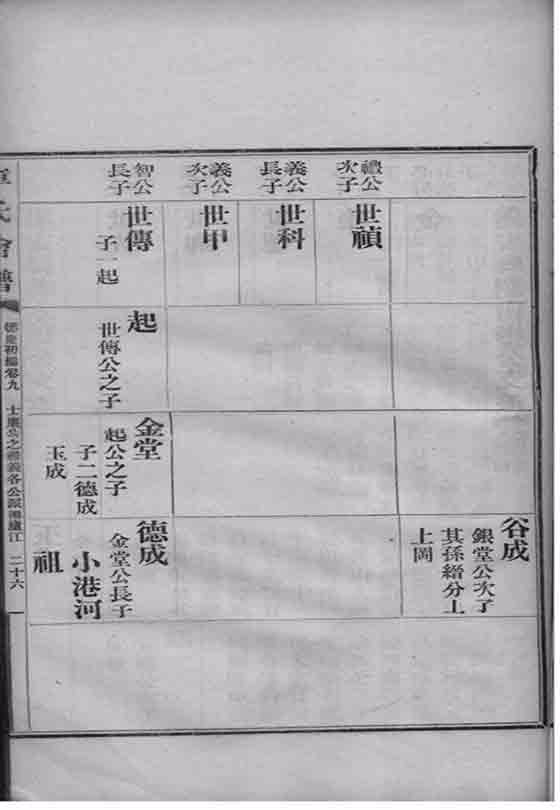 禮公
次子
世禎
義公
長子
世科
義公
次子
世甲
智公
長子
世傳
子一起
起
世傳公之子
金堂
起公之子
子二德成
玉成
谷成
銀堂公次子
其孫縉分上
上岡
德成
金堂公長子
小港河
祖
氏會譜
初編卷九
各公派
廬江
二十六